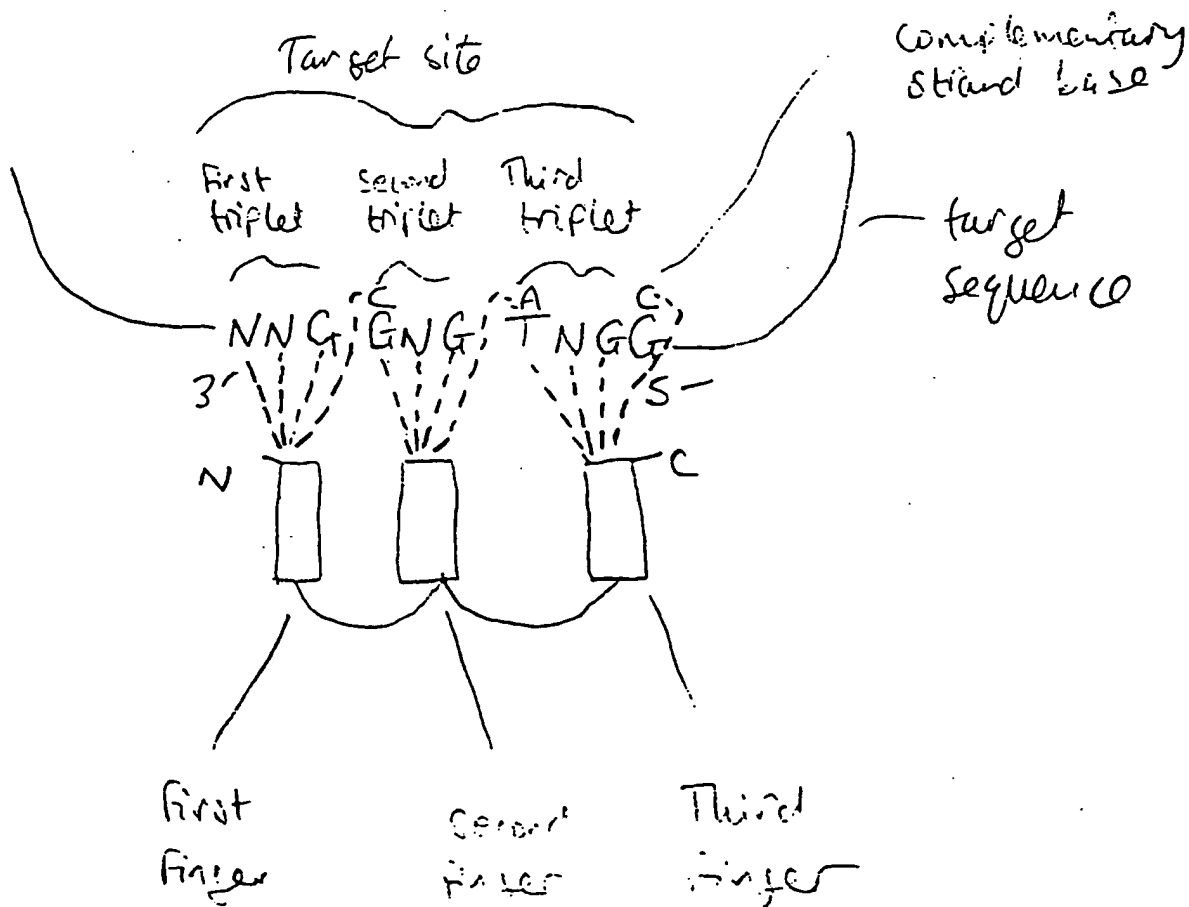 Target site
complementary
strand base
First
triplet
Second
triplet
Third
triplet
target
sequence
C A C
NNG GNG TNGG
3' 5
N C
First
Finger
Second
finger
Third
finger